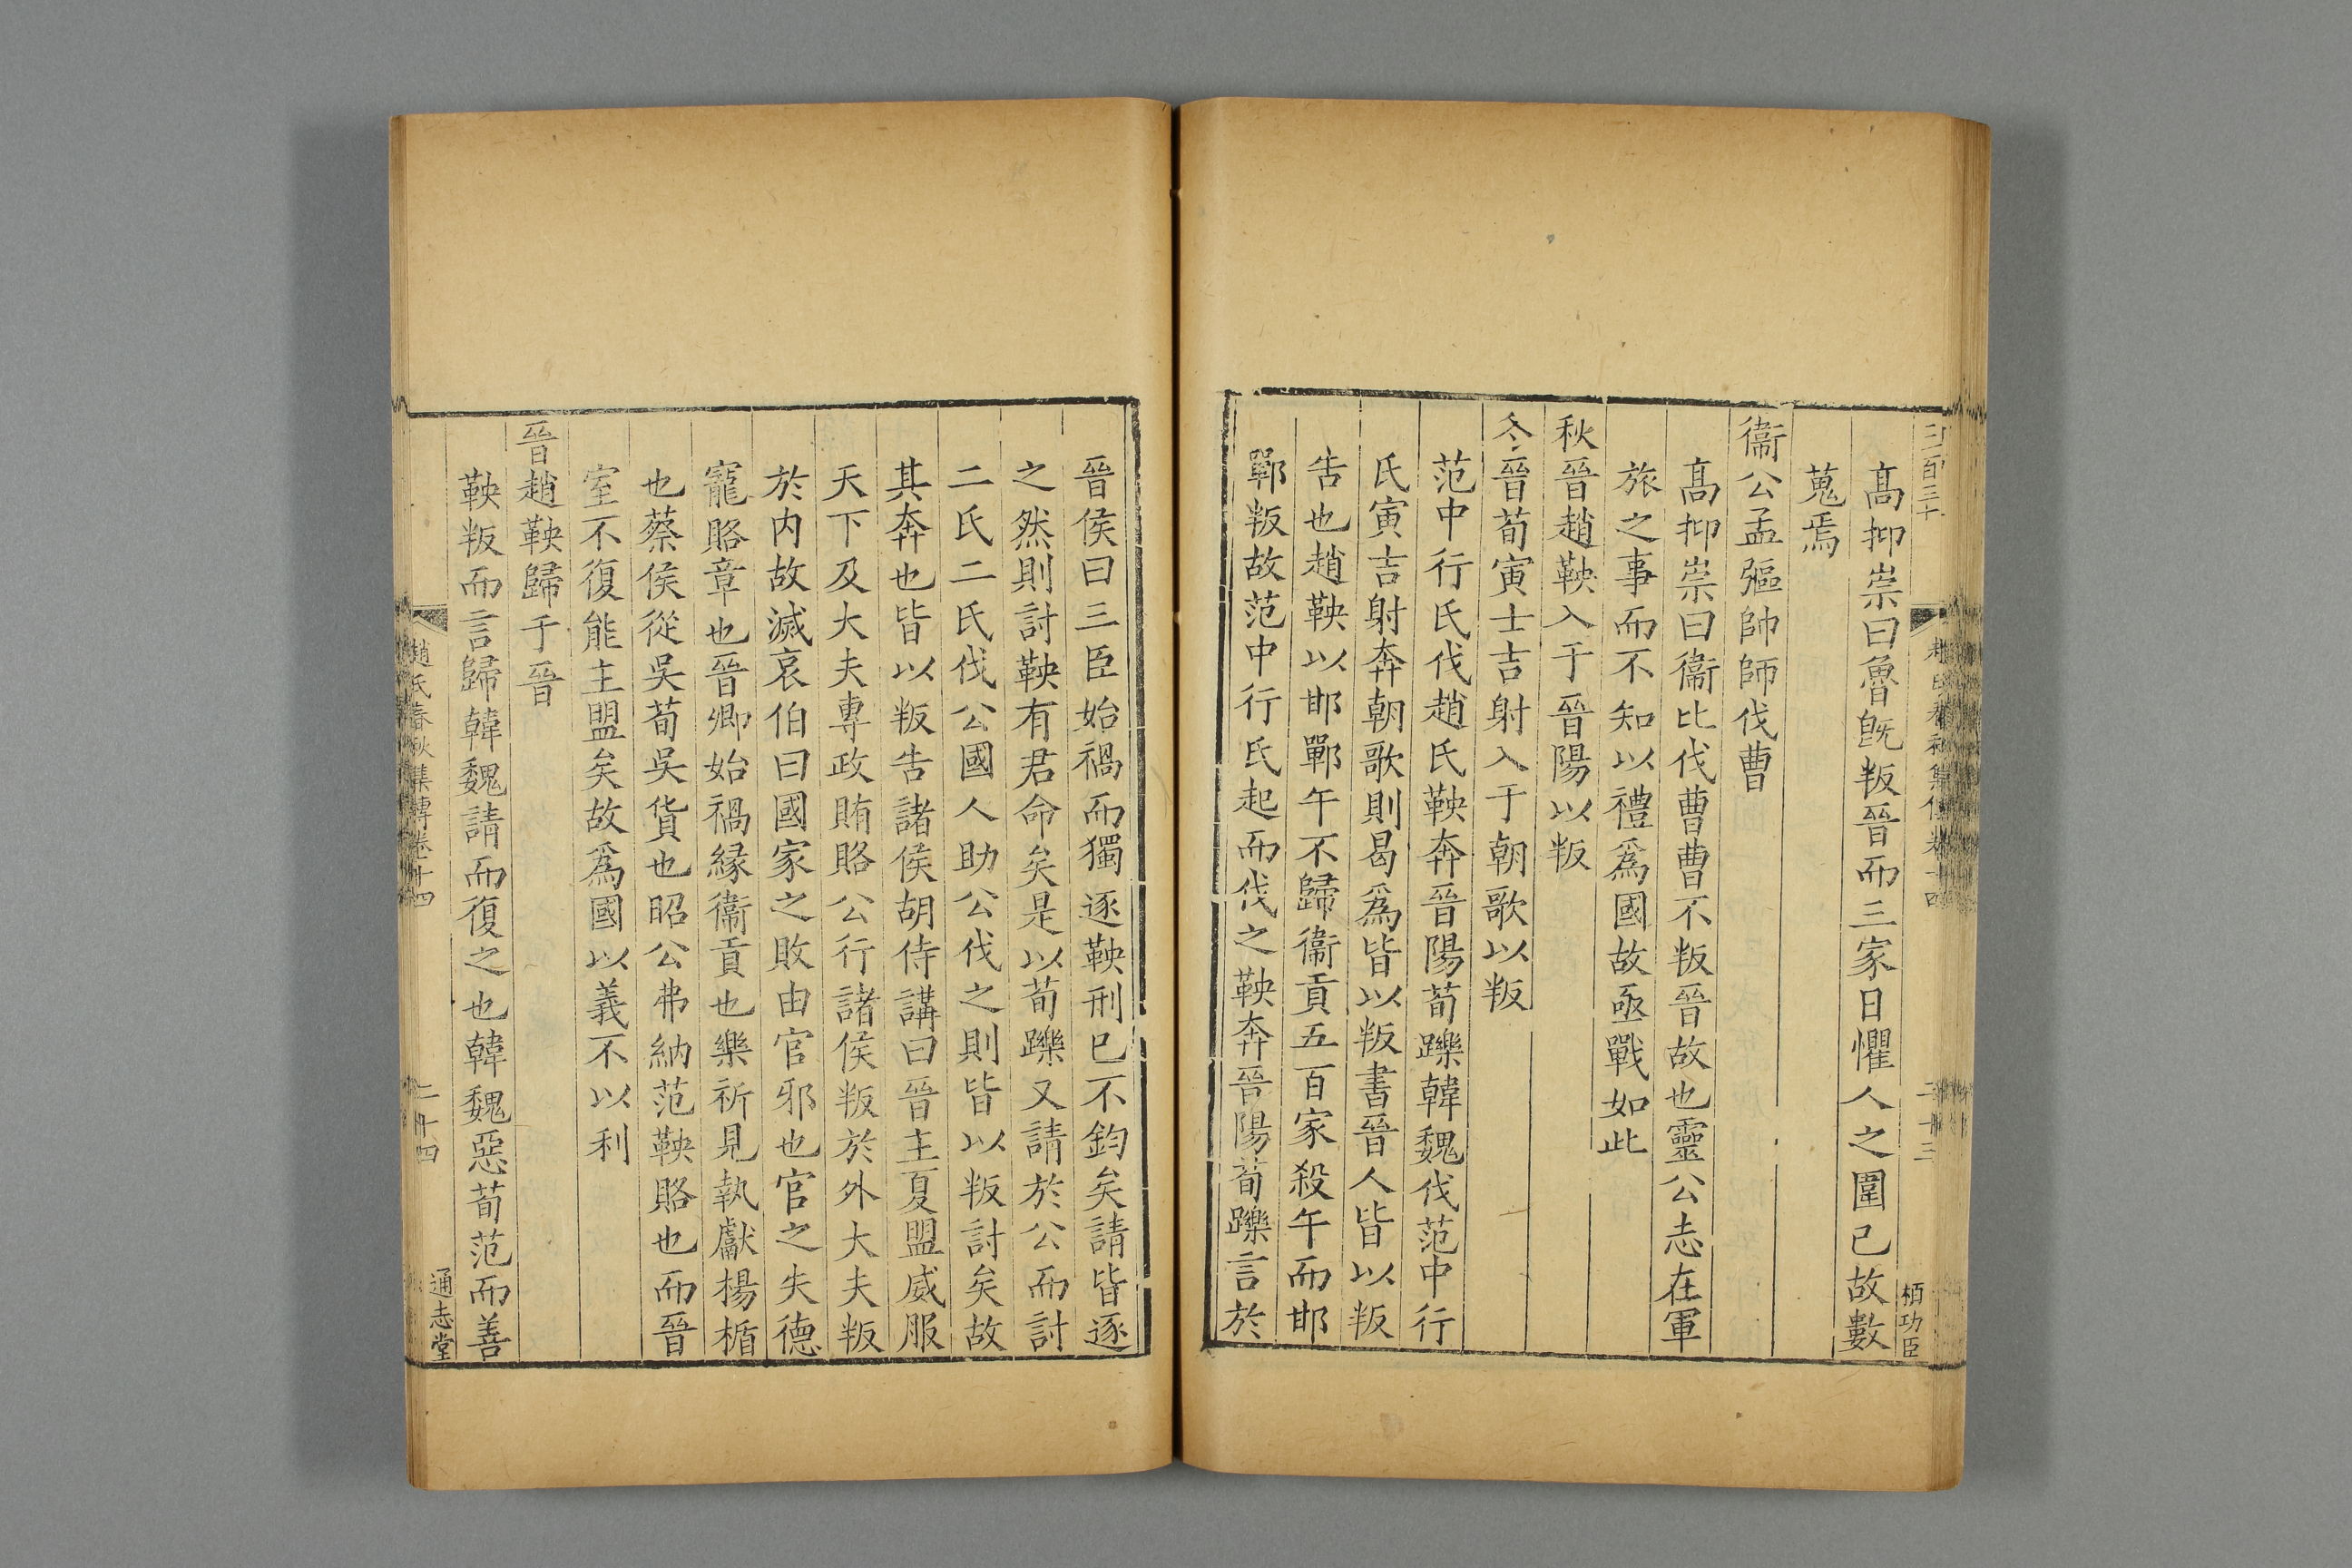 高抑崇曰魯旣叛晉而三家日懼人之圍己故數
蒐焉
衞公孟彄帥師伐曹
高抑崇曰衞比伐曹曹不叛晉故也靈公志在軍
旅之事而不知以禮爲國故亟戰如此
秋晉趙鞅入于晉陽以叛
冬晉荀寅士吉射入于朝歌以叛
范中行氏伐趙氏鞅奔晉陽荀躒韓魏伐范中行
氏寅吉射奔朝歌則曷爲皆以叛書晉人皆以叛
告也趙鞅以邯鄲午不歸衞貢五百家殺午而邯
鄲叛故范中行氏起而伐之鞅奔晉陽荀躒言於
栢功臣
晉侯曰三臣始禍而獨逐鞅刑已不鈞矣請皆逐
之然則討鞅有君命矣是以荀躒又請於公而討
二氏二氏伐公國人助公伐之則皆以叛討矣故
其奔也皆以叛告諸侯胡侍講曰晉主夏盟威服
天下及大夫專政賄賂公行諸侯叛於外大夫叛
於内故滅哀伯曰國家之敗由官邪也官之失德
寵賂章也晉卿始禍緣衞貢也樂祈見執獻楊楯
也蔡侯從吳荀吳貨也昭公弗納范鞅賂也而晉
室不復能主盟矣故爲國以義不以利
晉趙鞅歸于晉
鞅叛而言歸韓魏請而復之也韓魏惡荀范而善
趙氏春秋集傳卷十四
二十四
通志堂